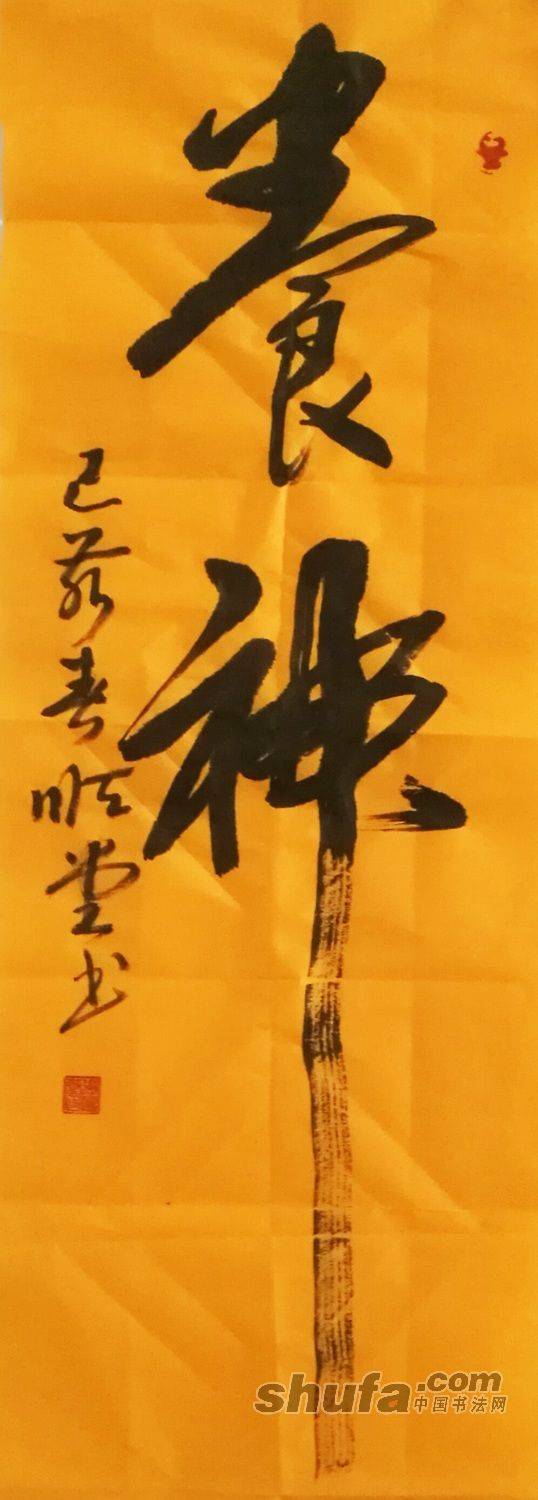 養神
己亥春順堂书
shufa.com
中国书法网